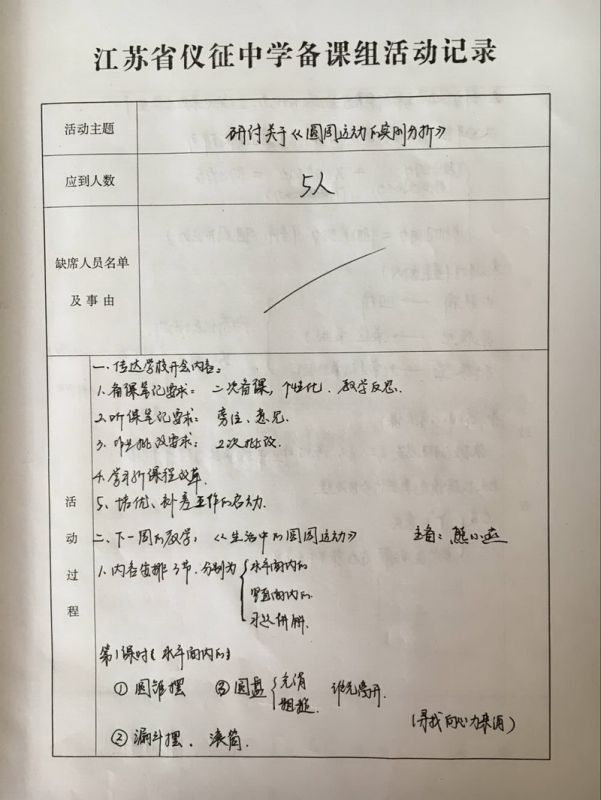 江苏省仪征中学备课组活动记录
活动主题
研讨关于《圆周运动的实例分析》
应到人数
5人
缺席人员名单
及事由
活动过程
一.传达学校开会内容。
1.备课笔记要求: 二次备课,个性化.教学反思.
2.听课笔记要求: 旁注、意见.
3.作业批改要求: 2次批改.
4.学习新课程改革.
5、培优、补差工作的启动.
二、下一周的教学:《生活中的圆周运动》 主备:熊小燕
1.内容安排3节.分别为 水平面内的
竖直面内的
习题讲解.
第1课时《水平面内的》
① 圆锥摆 ③ 圆盘 光滑 谁先离开.
粗糙.
(寻找向心力来源)
② 漏斗摆、滚筒.